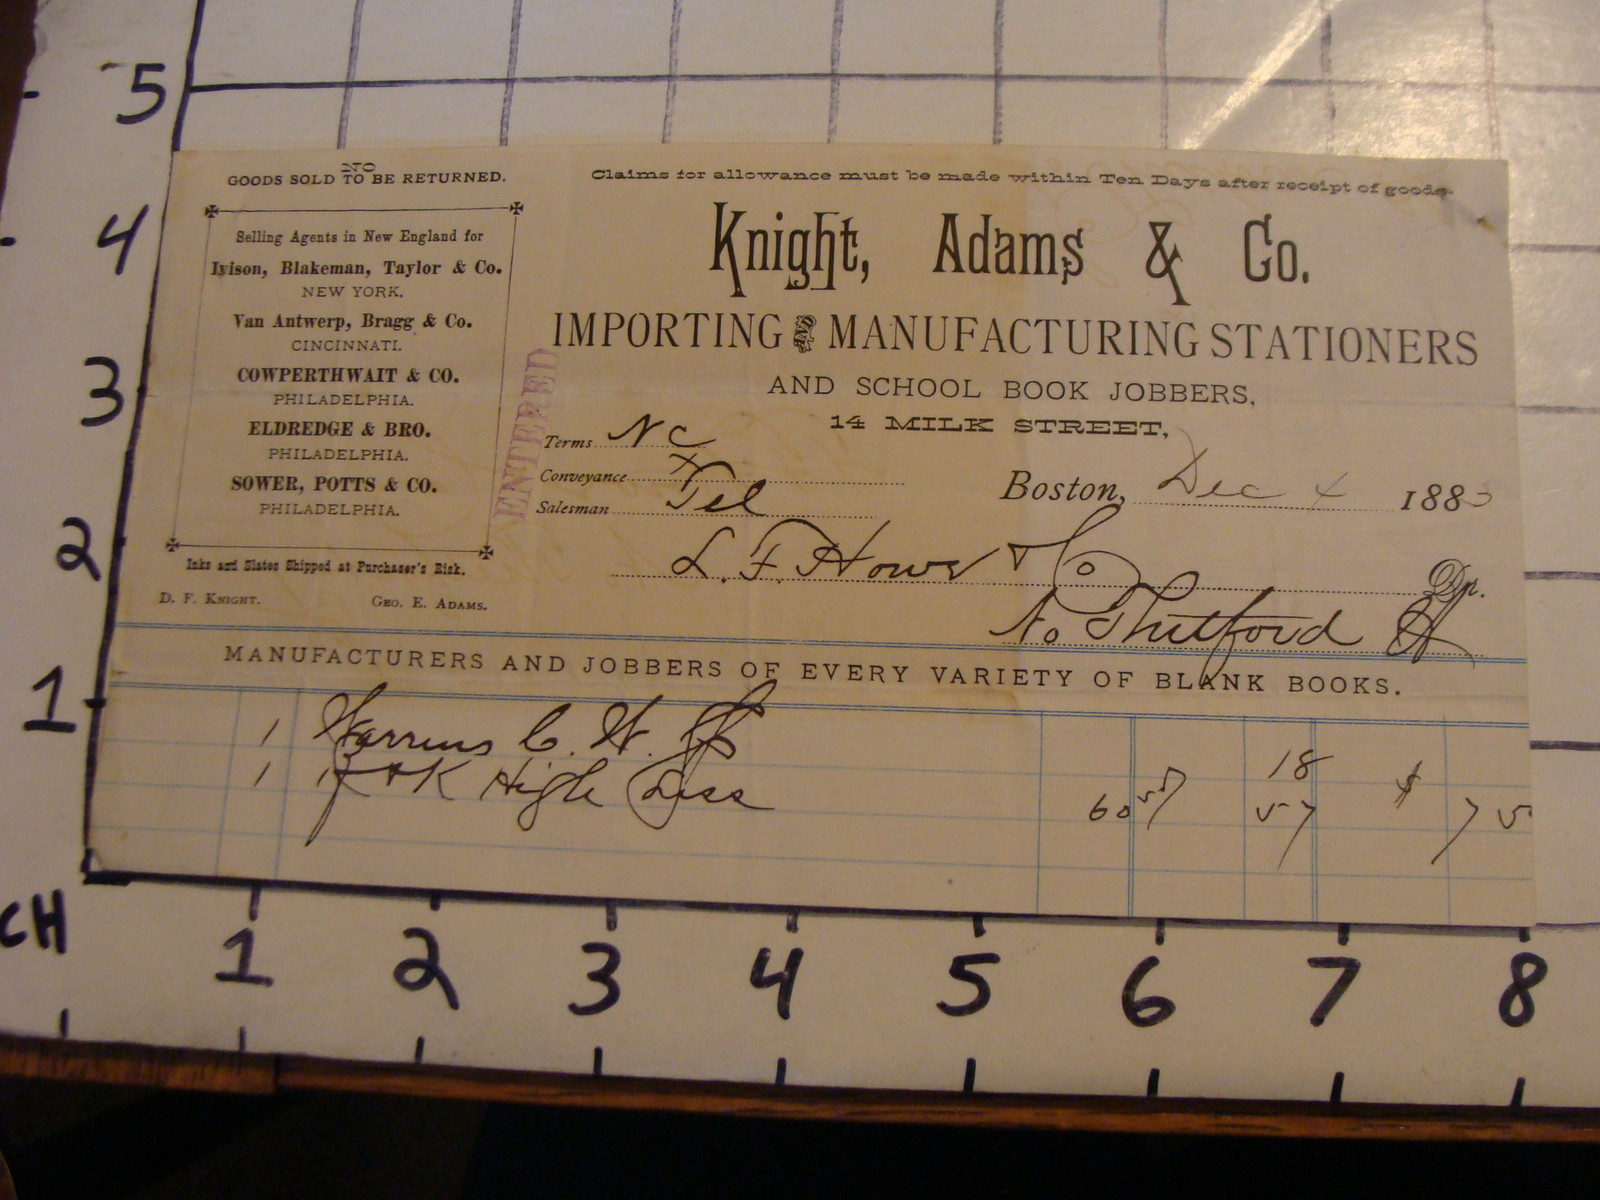 NO
GOODS SOLD TO BE RETURNED.
Claims for allowance must be made within Ten Days after receipt of goods.
Selling Agents in New England for
Ivison, Blakeman, Taylor & Co.
NEW YORK.
Van Antwerp, Bragg & Co.
CINCINNATI.
COWPERTHWAIT & CO.
PHILADELPHIA.
ELDREDGE & BRO.
PHILADELPHIA.
SOWER, POTTS & CO.
PHILADELPHIA.
Inks and Slates Shipped at Purchaser's Risk.
D. F. KNIGHT. GEO. E. ADAMS.
ENTERED
Knight, Adams & Co.
IMPORTING AND MANUFACTURING STATIONERS
AND SCHOOL BOOK JOBBERS,
14 MILK STREET,
Terms N C
Conveyance
Salesman Tel
Boston, Dec 4 1883
L. F. Howe & Co Dr.
No Thetford Vt
MANUFACTURERS AND JOBBERS OF EVERY VARIETY OF BLANK BOOKS.
1 Warrens C. H. 18
1 High Less 60 57 57 $ 75
5
4
3
2
1
CH
1 2 3 4 5 6 7 8